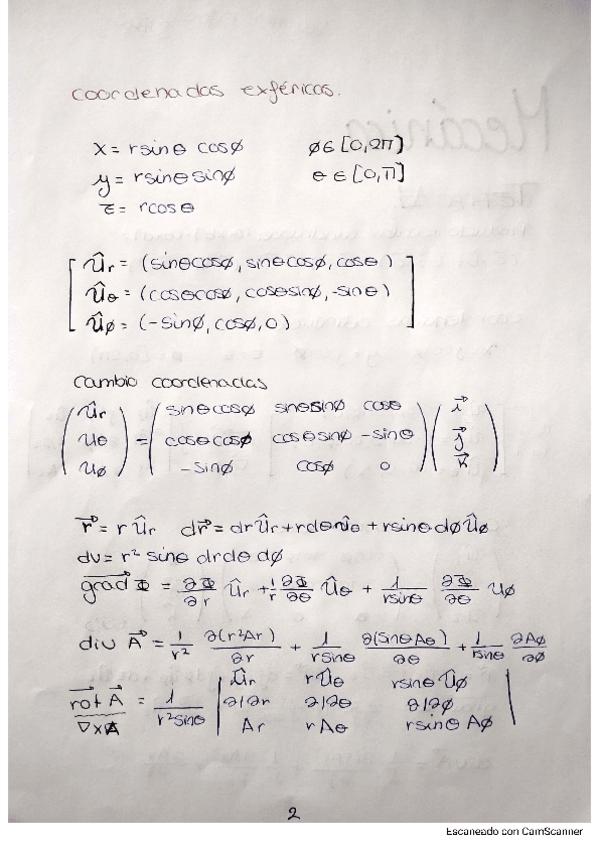 coordenadas exféricas.
x = r sinθ cosφ φ∈[0,2π]
y = r sinθ sinφ θ∈[0,π]
z = r cosθ
ûr = (sinθcosφ, sinθcosφ, cosθ)
ûθ = (cosθcosφ, cosθsinφ, -sinθ)
ûφ = (-sinφ, cosφ, 0)
cambio coordenadas
(ûr) = (sinθcosφ sinθsinφ cosθ) (i⃗)
(uθ) (cosθcosφ cosθsinφ -sinθ) (j⃗)
(uφ) (-sinφ cosφ 0) (k⃗)
r⃗ = r ûr dr⃗ = dr ûr + rdθ ûθ + rsinθ dφ ûφ
dv = r² sinθ dr dθ dφ
grad Φ = ∂Φ/∂r ûr + 1/r ∂Φ/∂θ ûθ + 1/rsinθ ∂Φ/∂θ uφ
div A⃗ = 1/r² ∂(r²Ar)/∂r + 1/rsinθ ∂(sinθAθ)/∂θ + 1/rsinθ ∂Aφ/∂φ
rot A⃗ = 1/r²sinθ | ûr rûθ rsinθ ûφ |
∇×A | ∂/∂r ∂/∂θ ∂/∂φ |
| Ar rAθ rsinθ Aφ |
2
Escaneado con CamScanner